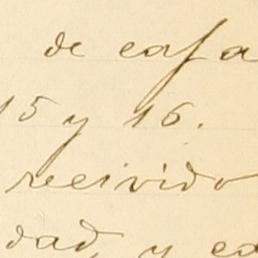 de casa
15 y 16.
recivido
dad, y ca